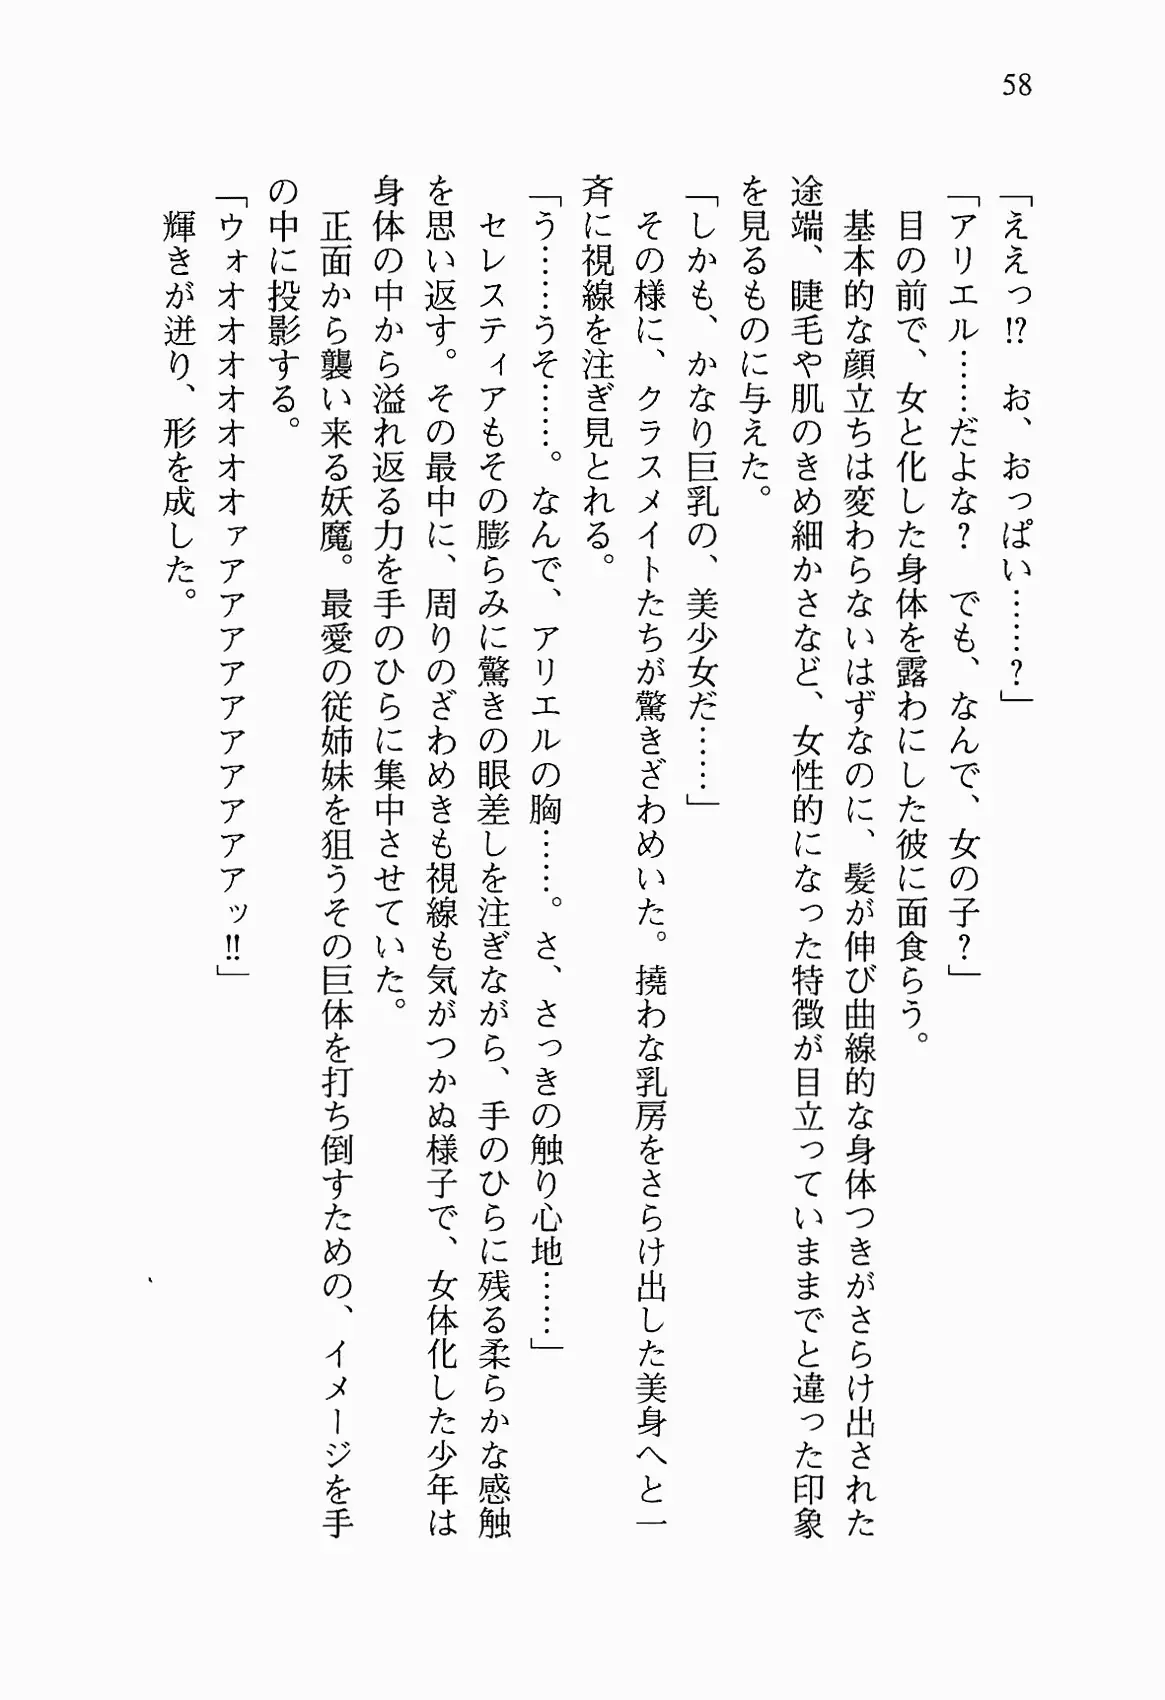 58
「ええっ!? お、おっぱい……?」
「アリエル……だよな? でも、なんで、女の子?」
目の前で、女と化した身体を露わにした彼に面食らう。
基本的な顔立ちは変わらないはずなのに、髪が伸び曲線的な身体つきがさらけ出された
途端、睫毛や肌のきめ細かさなど、女性的になった特徴が目立っていままでと違った印象
を見るものに与えた。
「しかも、かなり巨乳の、美少女だ……」
その様に、クラスメイトたちが驚きざわめいた。撓わな乳房をさらけ出した美身へと一
斉に視線を注ぎ見とれる。
「う……うそ……。なんで、アリエルの胸……。さ、さっきの触り心地……」
セレスティアもその膨らみに驚きの眼差しを注ぎながら、手のひらに残る柔らかな感触
を思い返す。その最中に、周りのざわめきも視線も気がつかぬ様子で、女体化した少年は
身体の中から溢れ返る力を手のひらに集中させていた。
正面から襲い来る妖魔。最愛の従姉妹を狙うその巨体を打ち倒すための、イメージを手
の中に投影する。
「ウォオオオオオオオァアアアアアアアアアアッ!!」
輝きが迸り、形を成した。